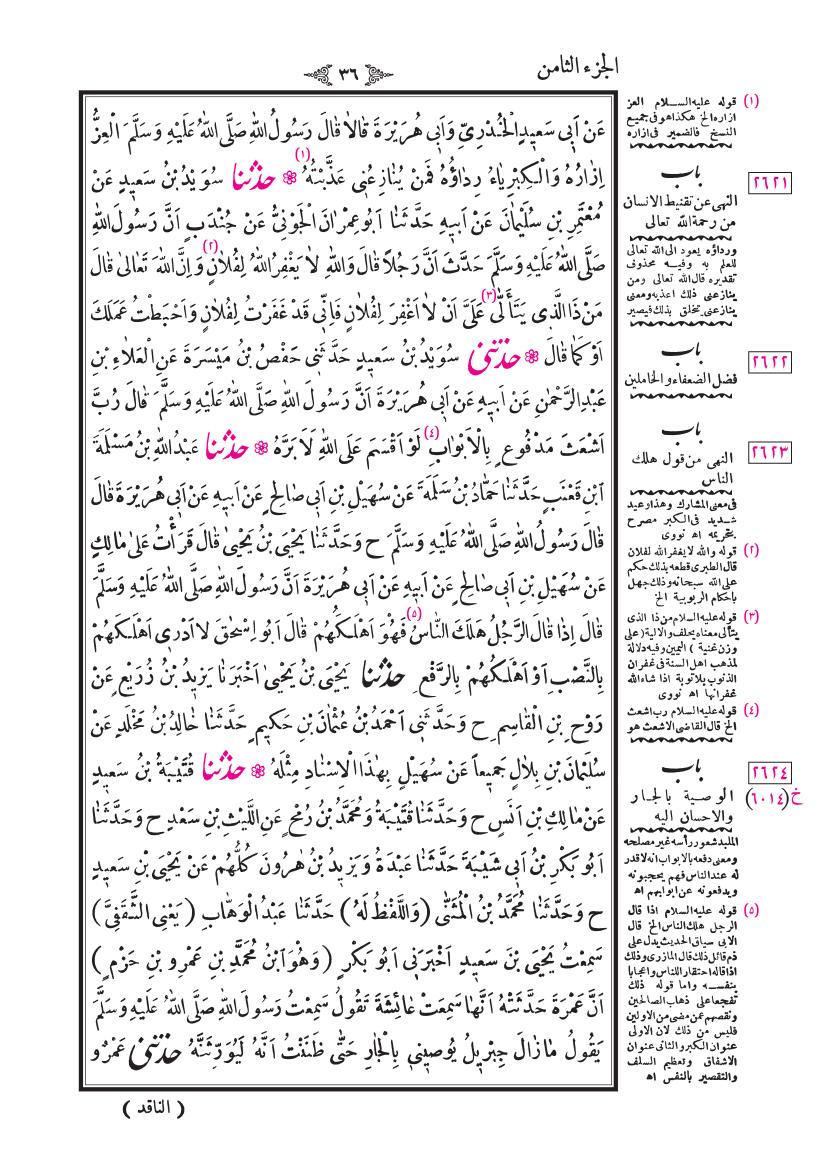 الجزء الثامن
٣٦
عَنْ اَبِى سَعِيدٍ الْخُدْرِىِّ وَاَبِى هُرَيْرَةَ قَالَا قَالَ رَسُولُ اللهِ صَلَّى اللهُ عَلَيْهِ وَسَلَّمَ الْعِزُّ
اِزَارُهُ وَالْكِبْرِيَاءُ رِدَاؤُهُ فَمَنْ يُنَازِعُنِى عَذَّبْتُهُ (١) ❁ حَدَّثَنَا سُوَيْدُ بْنُ سَعِيدٍ عَنْ
مُعْتَمِرِ بْنِ سُلَيْمَانَ عَنْ اَبِيهِ حَدَّثَنَا اَبُو عِمْرَانَ الْجَوْنِىُّ عَنْ جُنْدَبٍ اَنَّ رَسُولَ اللهِ
صَلَّى اللهُ عَلَيْهِ وَسَلَّمَ حَدَّثَ اَنَّ رَجُلاً قَالَ وَاللهِ لَا يَغْفِرُ اللهُ لِفُلَانٍ (٢) وَاِنَّ اللهَ تَعَالَى قَالَ
مَنْ ذَا الَّذِى يَتَأَلَّى (٣) عَلَىَّ اَنْ لَا اَغْفِرَ لِفُلَانٍ فَاِنِّى قَدْ غَفَرْتُ لِفُلَانٍ وَاَحْبَطْتُ عَمَلَكَ
اَوْ كَمَا قَالَ ❁ حَدَّثَنِى سُوَيْدُ بْنُ سَعِيدٍ حَدَّثَنِى حَفْصُ بْنُ مَيْسَرَةَ عَنِ الْعَلَاءِ بْنِ
عَبْدِ الرَّحْمٰنِ عَنْ اَبِيهِ عَنْ اَبِى هُرَيْرَةَ اَنَّ رَسُولَ اللهِ صَلَّى اللهُ عَلَيْهِ وَسَلَّمَ قَالَ رُبَّ
اَشْعَثَ مَدْفُوعٍ بِالْاَبْوَابِ (٤) لَوْ اَقْسَمَ عَلَى اللهِ لَاَبَرَّهُ ❁ حَدَّثَنَا عَبْدُ اللهِ بْنُ مَسْلَمَةَ
ابْنِ قَعْنَبٍ حَدَّثَنَا حَمَّادُ بْنُ سَلَمَةَ عَنْ سُهَيْلِ بْنِ اَبِى صَالِحٍ عَنْ اَبِيهِ عَنْ اَبِى هُرَيْرَةَ قَالَ
قَالَ رَسُولُ اللهِ صَلَّى اللهُ عَلَيْهِ وَسَلَّمَ ح وَحَدَّثَنَا يَحْيَى بْنُ يَحْيَى قَالَ قَرَأْتُ عَلَى مَالِكٍ
عَنْ سُهَيْلِ بْنِ اَبِى صَالِحٍ عَنْ اَبِيهِ عَنْ اَبِى هُرَيْرَةَ اَنَّ رَسُولَ اللهِ صَلَّى اللهُ عَلَيْهِ وَسَلَّمَ
قَالَ اِذَا قَالَ الرَّجُلُ هَلَكَ النَّاسُ (٥) فَهُوَ اَهْلَكُهُمْ قَالَ اَبُو اِسْحٰقَ لَا اَدْرِى اَهْلَكَهُمْ
بِالنَّصْبِ اَوْ اَهْلَكُهُمْ بِالرَّفْعِ حَدَّثَنَا يَحْيَى بْنُ يَحْيَى اَخْبَرَنَا يَزِيدُ بْنُ زُرَيْعٍ عَنْ
رَوْحِ بْنِ الْقَاسِمِ ح وَحَدَّثَنِى اَحْمَدُ بْنُ عُثْمَانَ بْنِ حَكِيمٍ حَدَّثَنَا خَالِدُ بْنُ مَخْلَدٍ عَنْ
سُلَيْمَانَ بْنِ بِلَالٍ جَمِيعاً عَنْ سُهَيْلٍ بِهٰذَا الْاِسْنَادِ مِثْلَهُ ❁ حَدَّثَنَا قُتَيْبَةُ بْنُ سَعِيدٍ
عَنْ مَالِكِ بْنِ اَنَسٍ ح وَحَدَّثَنَا قُتَيْبَةُ وَمُحَمَّدُ بْنُ رُمْحٍ عَنِ اللَّيْثِ بْنِ سَعْدٍ ح وَحَدَّثَنَا
اَبُو بَكْرِ بْنُ اَبِى شَيْبَةَ حَدَّثَنَا عَبْدَةُ وَيَزِيدُ بْنُ هٰرُونَ كُلُّهُمْ عَنْ يَحْيَى بْنِ سَعِيدٍ
ح وَحَدَّثَنَا مُحَمَّدُ بْنُ الْمُثَنَّى (وَاللَّفْظُ لَهُ) حَدَّثَنَا عَبْدُ الْوَهَّابِ (يَعْنِى الثَّقَفِىَّ)
سَمِعْتُ يَحْيَى بْنَ سَعِيدٍ اَخْبَرَنِى اَبُو بَكْرٍ (وَهُوَ ابْنُ مُحَمَّدِ بْنِ عَمْرِو بْنِ حَزْمٍ)
اَنَّ عَمْرَةَ حَدَّثَتْهُ اَنَّهَا سَمِعَتْ عَائِشَةَ تَقُولُ سَمِعْتُ رَسُولَ اللهِ صَلَّى اللهُ عَلَيْهِ وَسَلَّمَ
يَقُولُ مَا زَالَ جِبْرِيلُ يُوصِينِى بِالْجَارِ حَتَّى ظَنَنْتُ اَنَّهُ لَيُوَرِّثَنَّهُ حَدَّثَنِى عَمْرٌو
(١) قوله عليه السلام العز
ازاره الخ هكذا هو فى جميع
النسخ فالضمير فى ازاره
٢٦٢١
باب
النهى عن تقنيط الانسان
من رحمة الله تعالى
ورداؤه يعود الى الله تعالى
للعلم به وفيه محذوف
تقديره قال الله تعالى ومن
ينازعنى ذلك اعذبه ومعنى
ينازعنى يتخلق بذلك فيصير
٢٦٢٢
باب
فضل الضعفاء والخاملين
٢٦٢٣
باب
النهى من قول هلك
الناس
فى معنى المشارك وهذا وعيد
شديد فى الكبر مصرح
بتحريمه اه نووى
(٢) قوله والله لا يغفر الله لفلان
قال الطبرى قطعه بذلك حكم
على الله سبحانه وذلك جهل
باحكام الربوبية الخ
(٣) قوله عليه السلام من ذا الذى
يتألى معناه يحلف والالية (على
وزن غنية) اليمين وفيه دلالة
لمذهب اهل السنة فى غفران
الذنوب بلا توبة اذا شاء الله
غفرانها اه نووى
(٤) قوله عليه السلام رب اشعث
الخ قال القاضى الاشعث هو
٢٦٢٤
باب
خ (٦٠١٤)
الوصية بالجار
والاحسان اليه
الملبد شعور رأسه غير مصلحه
ومعنى دفعه بالابواب انه لاقدر
له عند الناس فهم يحجبونه
ويدفعونه عن ابوابهم اه
(٥) قوله عليه السلام اذا قال
الرجل هلك الناس الخ قال
الابى سياق الحديث يدل على
ذم قائل ذلك قال المازرى وذلك
اذا قاله احتقارا للناس واعجابا
بنفسه واما قوله ذلك
تفجعا على ذهاب الصالحين
ونقصهم عن مضى من الاولين
فليس من ذلك لان الاولى
عنوان الكبر والثانى عنوان
الاشفاق وتعظيم السلف
والتقصير بالنفس اه
(الناقد)